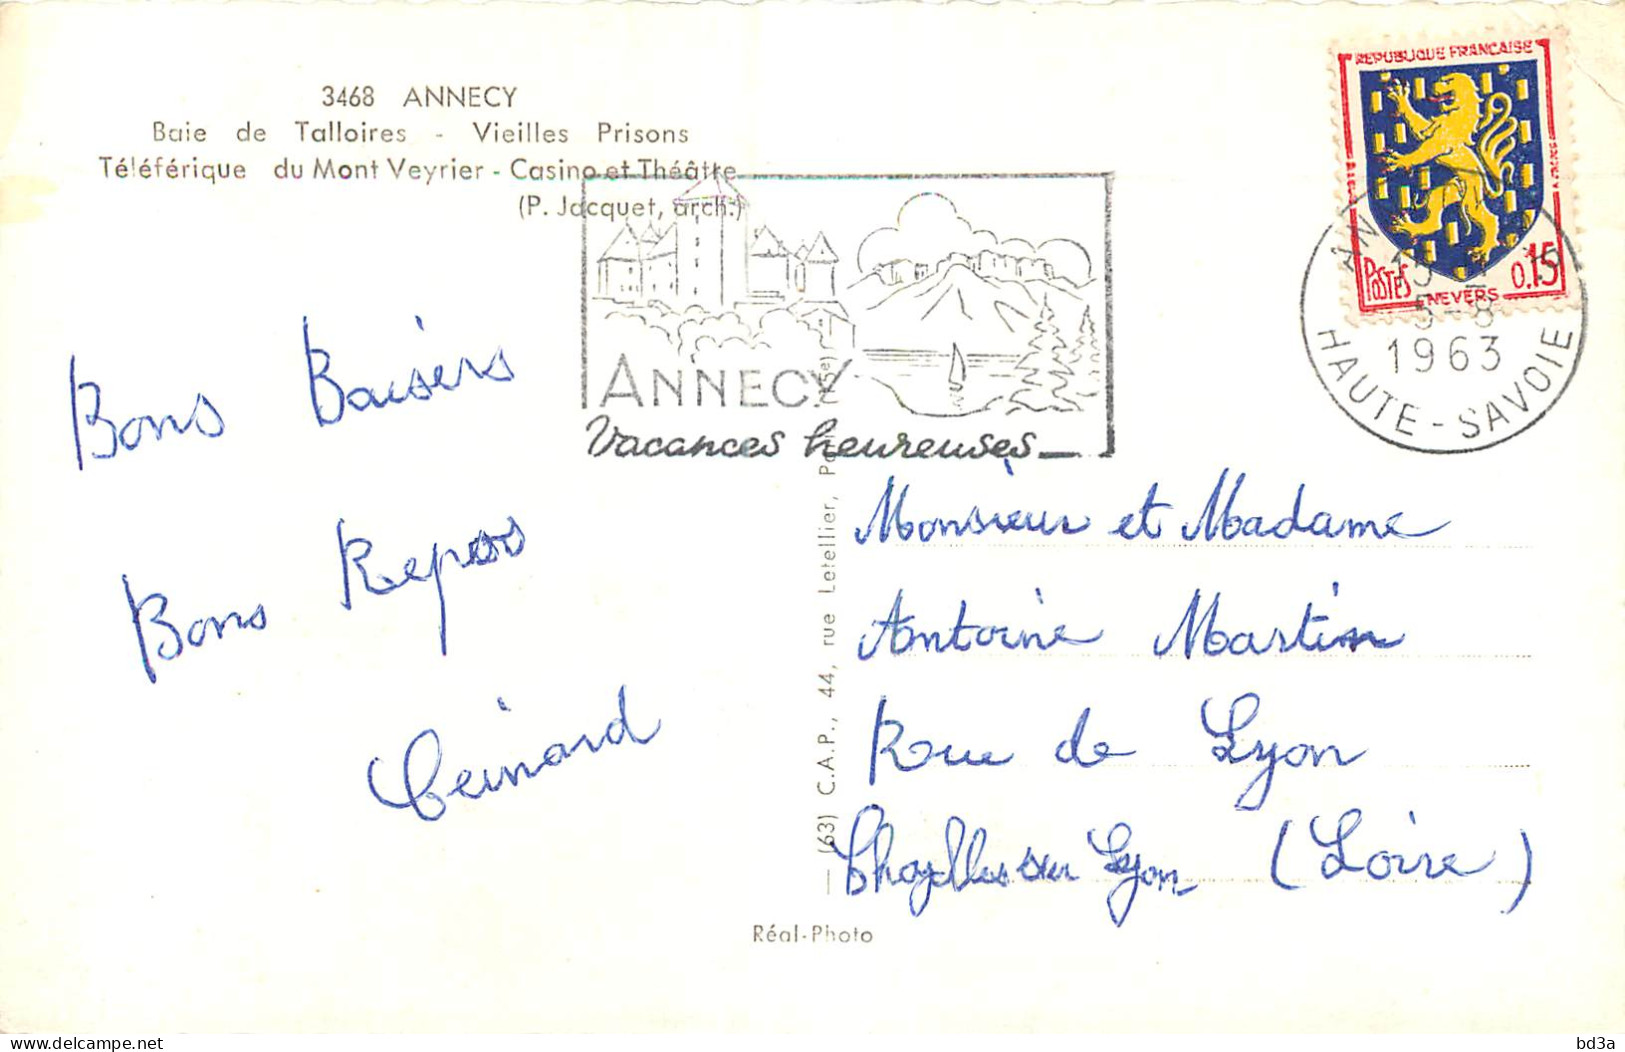 3468 ANNECY
Baie de Talloires - Vieilles Prisons
Téléférique du Mont Veyrier - Casino et Théâtre
(P. Jacquet, arch.)
REPUBLIQUE FRANCAISE
POSTES 0,15
NEVERS
5-8
1963
HAUTE-SAVOIE
ANNECY
Vacances heureuses_
Bons Baisers
Bons Repos
Bernard
Monsieur et Madame
Antoine Martin
Roue de Lyon
sur Lyon (Loire)
(63) C.A.P., 44, rue Letellier,
Réal-Photo
delcampe.net
bd3a